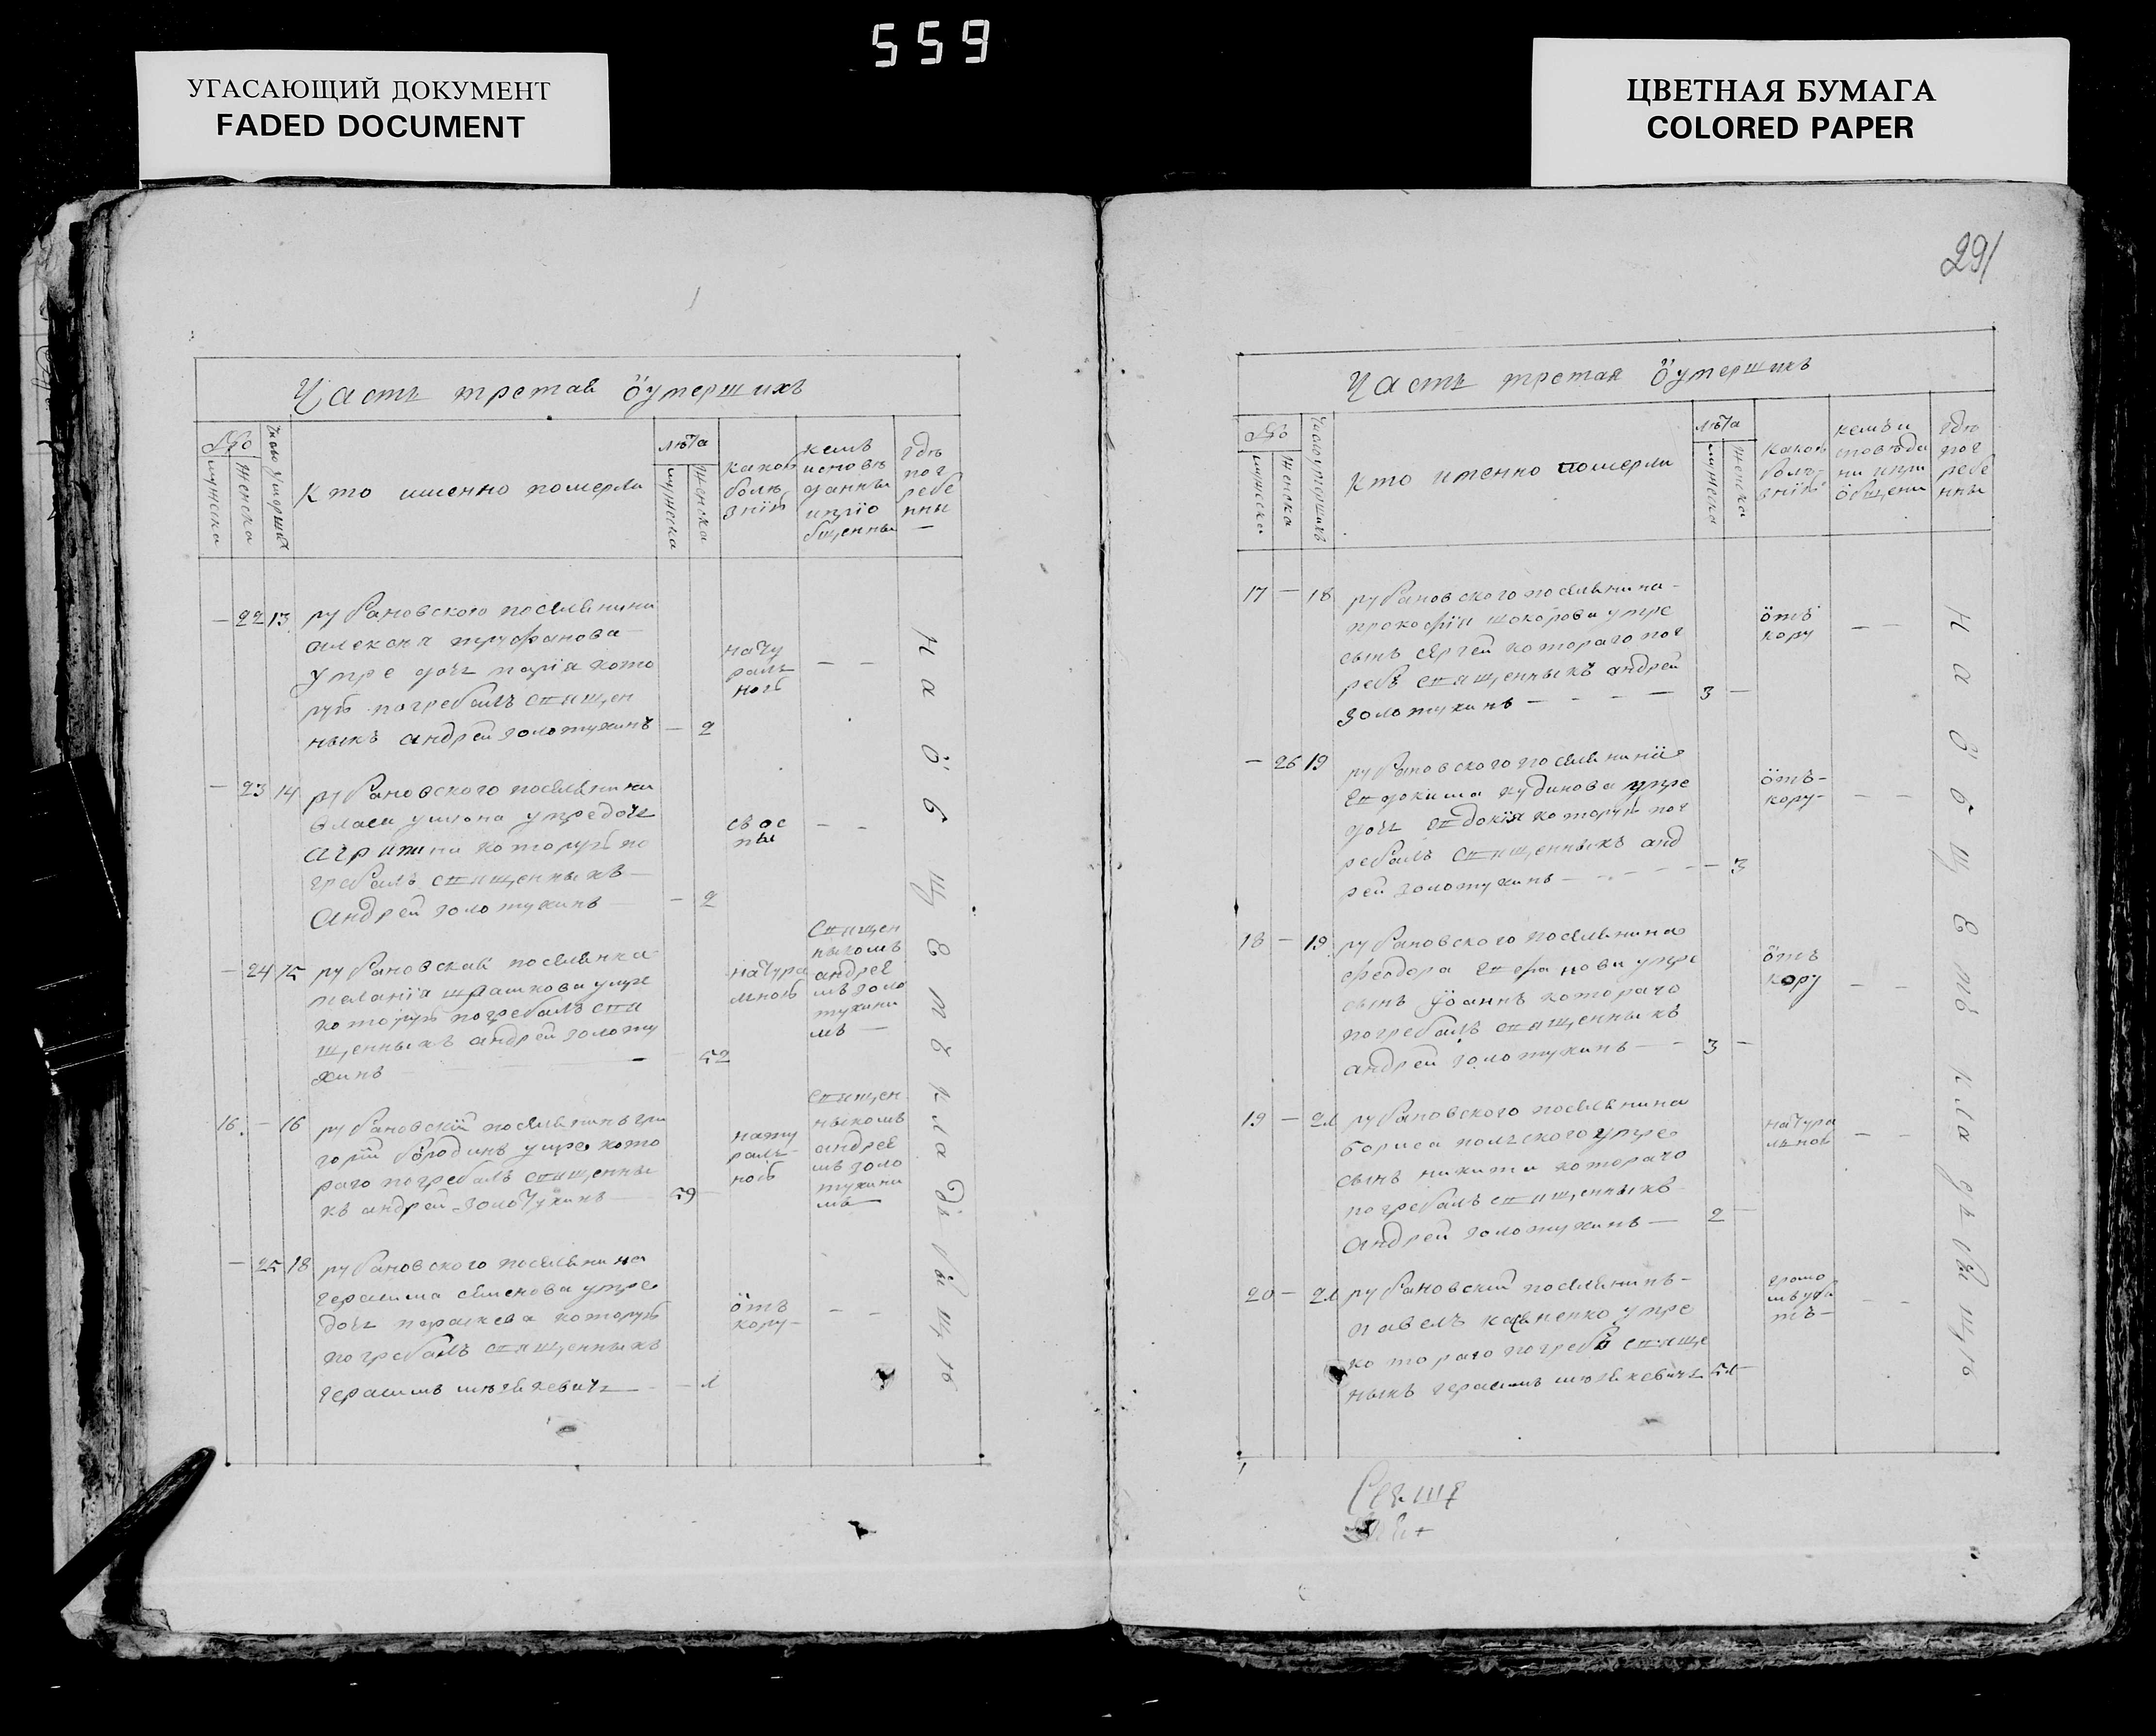 559
УГАСАЮЩИЙ ДОКУМЕНТ
FADED DOCUMENT
ЦВЕТНАЯ БУМАГА
COLORED PAPER
Часть третая ӧумершихъ
№
мужеска
женска
Число умерших
Кто именно померли
лѣта
мужеска
женска
какою
болѣ
знїю
кемъ
исповѣ
данны
и прїо
бщенны
гдѣ
пог
ребе
нны
— 22 13
рубановского поселянина
алексѣя труфанова
умре дочь марїя кото
рую погребалъ священ
никъ андрей золотухинъ
— 2
нату
раль
ною
— —
— 23 14
рубановского поселянина
власа умре дочь
агрипина которую по
гребалъ священникъ
Андрей золотухинъ
— 2
съ ос
пы
— —
— 24 15
рубановская поселянка
меланїя умре
которую погребалъ свя
щенникъ андрей золоту
хинъ —
52
натура
льною
Священ
никомъ
андрее
мъ золо
тухины
мъ —
16 — 16
рубановскїй поселянинъ гри
горїй бородинъ умре кото
раго погребалъ священни
къ андрей золотухинъ
59 —
нату
раль
ною
Священ
никомъ
андрее
мъ золо
тухины
мъ
— 25 18
рубановского поселянина
герасима семенова умре
дочь параскева которую
погребалъ священникъ
герасимъ
— 1
ӧтъ
кору
— —
на ӧбщемъ кладбищѣ
291
Часть третая ӧумершихъ
№
мужеска
женска
Число умершихъ
Кто именно померли
лѣта
мужеска
женска
какою
болѣ
знїю
кемъ и
споведа
ни и при
ӧбщени
гдѣ
пог
ребе
нны
17 — 18
рубановского поселянина
прокофїя шокорова умре
сынъ сергей котораго пог
ребъ священникъ андрей
золотухинъ — — — —
3 —
ӧтъ
кору
— —
— 26 19
рубановского поселянина
Евдокима кудинова умре
дочь евдокїя которую пог
ребалъ священникъ анд
рей золотухинъ — — — —
— 3
ӧтъ
кору
— —
18 — 19
рубановского поселянина
феодора умре
сынъ ӱоаннъ котораго
погребалъ священникъ
андрей золотухинъ — —
3 —
ӧтъ
кору
— —
19 — 21
рубановского поселянина
бориса польского умре
сынъ никита котораго
погребалъ священникъ
Андрей золотухинъ —
2 —
натура
льною
— —
20 — 21
рубановский поселянинъ
павелъ умре
котораго погребъ священ
никъ герасимъ
51 —
громо
мъ уби
тъ —
— —
на ӧбщемъ кладбищѣ